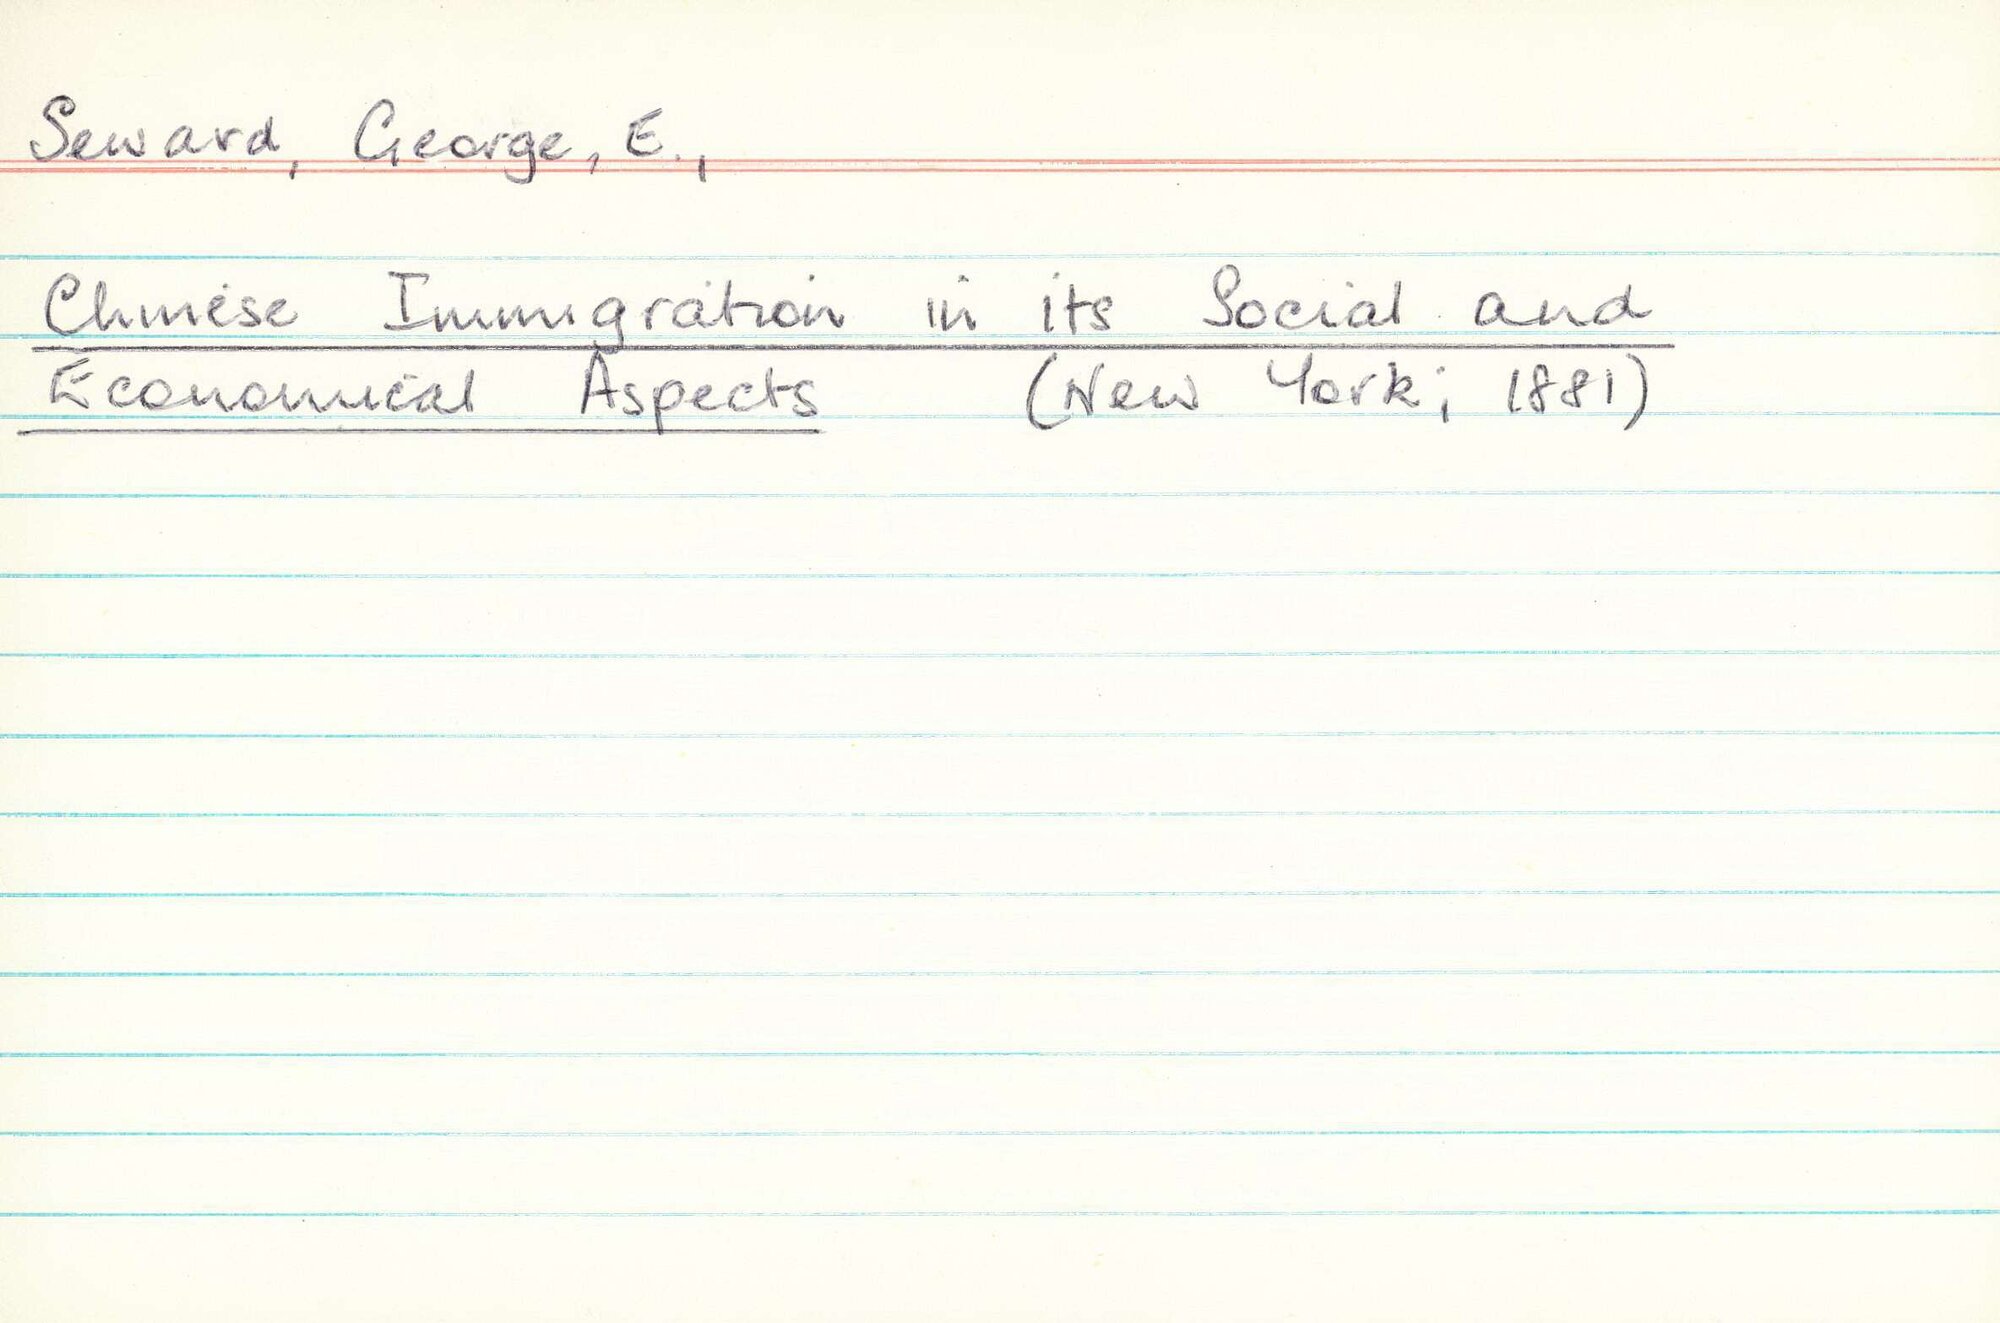 Seward, George, E.,
Chinese Immigration in its Social and
Economical Aspects (New York; 1881)